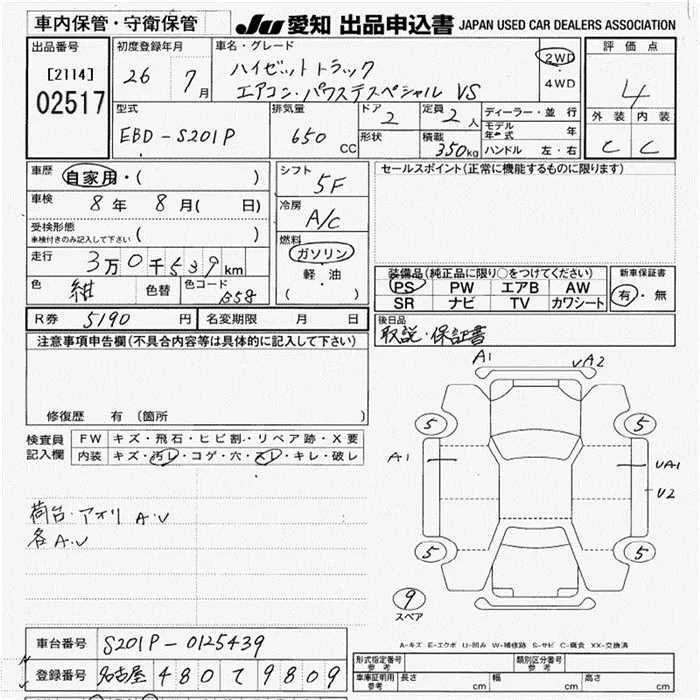 車内保管・守衛保管
JU 愛知 出品申込書 JAPAN USED CAR DEALERS ASSOCIATION
出品番号
[2114]
02517
初度登録年月
26 7月
車名・グレード
ハイゼットトラック
エアコン・パワステスペシャル VS
2WD
・
4WD
評価点
4
外装 内装
C C
型式
EBD-S201P
排気量
650 CC
ドア
2
形状
定員
2人
積載
350kg
ディーラー・並行
モデル年式 年
ハンドル 左・右
車歴
自家用・( )
車検
8年 8月( 日)
受検形態
車検付きのみ記入して下さい ( )
走行
3万0千539km
色
紺
色替
色コード
B58
シフト
5F
冷房
A/C
燃料
ガソリン
軽・油
( )
セールスポイント(正常に機能するものに限ります)
装備品(純正品に限り○をつけてください)
PS PW エアB AW
SR ナビ TV カワシート
新車保証書
有・無
後日品
取説・保証書
R券 5190円
名変期限 月 日
注意事項申告欄(不具合内容等は具体的に記入して下さい)
修復歴 有 (箇所 )
検査員
記入欄
FW キズ・飛石・ヒビ割・リペア跡・X要
内装 キズ・汚レ・コゲ・穴・スレ・キレ・破レ
荷台・アオリ A・U
各A・U
A1
UA2
5
5
A1
UA1
U2
5
5
9
スペア
A-キズ E-エクボ U-凹み W-補修跡 S-サビ C-腐食 XX-交換済
車台番号
S201P-0125439
登録番号
名古屋 480 て 9809
形式指定番号
参考
類別区分番号
参考
車庫証明用
参考
長さ cm
幅 cm
高さ cm